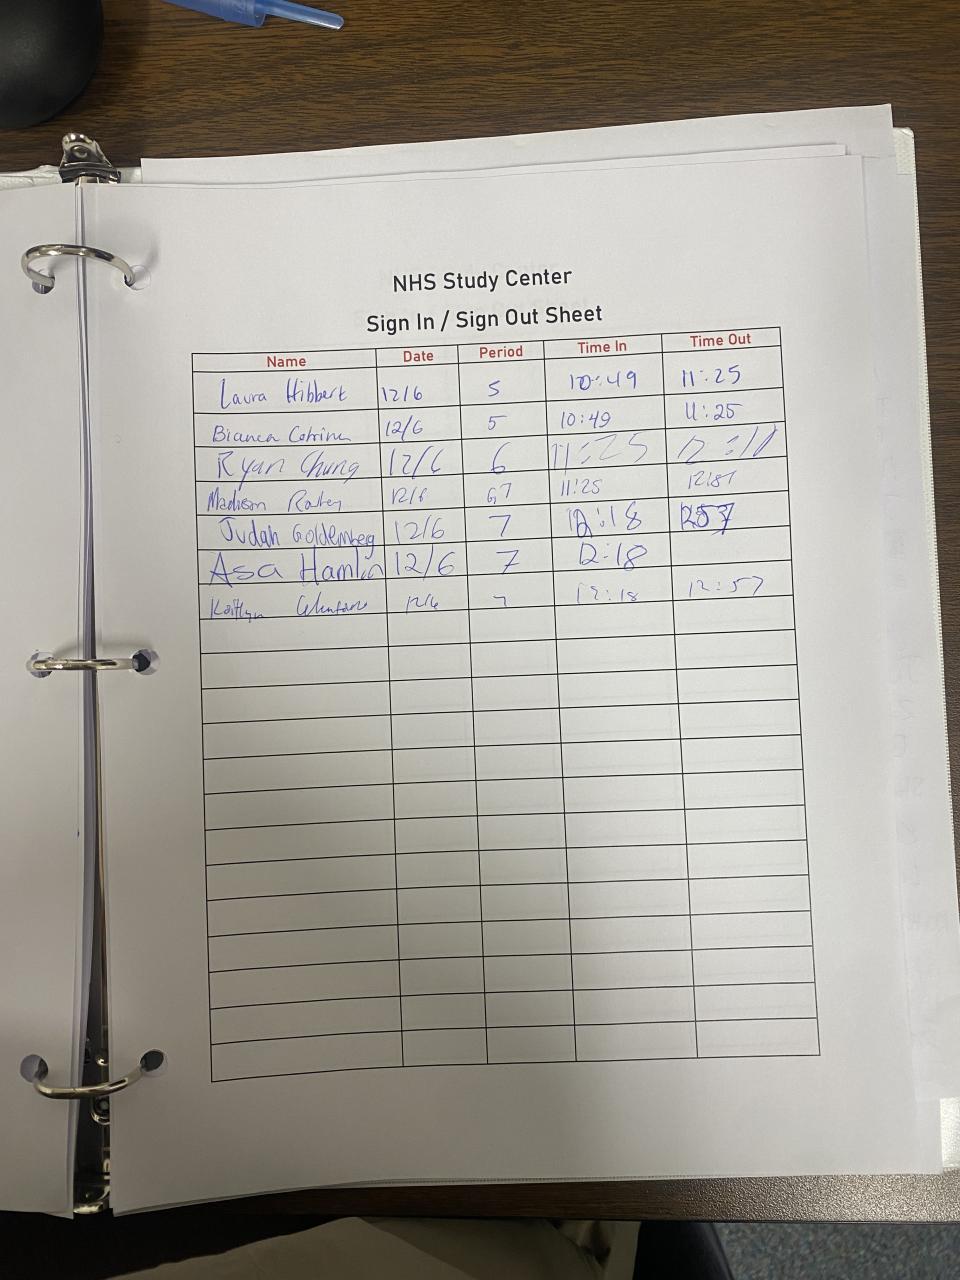 NHS Study Center
Sign In / Sign Out Sheet
Name Date Period Time In Time Out
Laura Hibbert 12/6 5 10:49 11:25
Bianca 12/6 5 10:49 11:25
Ryan Chung 12/6 6 11:25 12:11
Madison 12/6 67 11:25
Judah Goldemberg 12/6 7 12:18 1257
Asa Hamlin 12/6 7 12:18
Kaitlyn 12/6 7 12:18 12:57